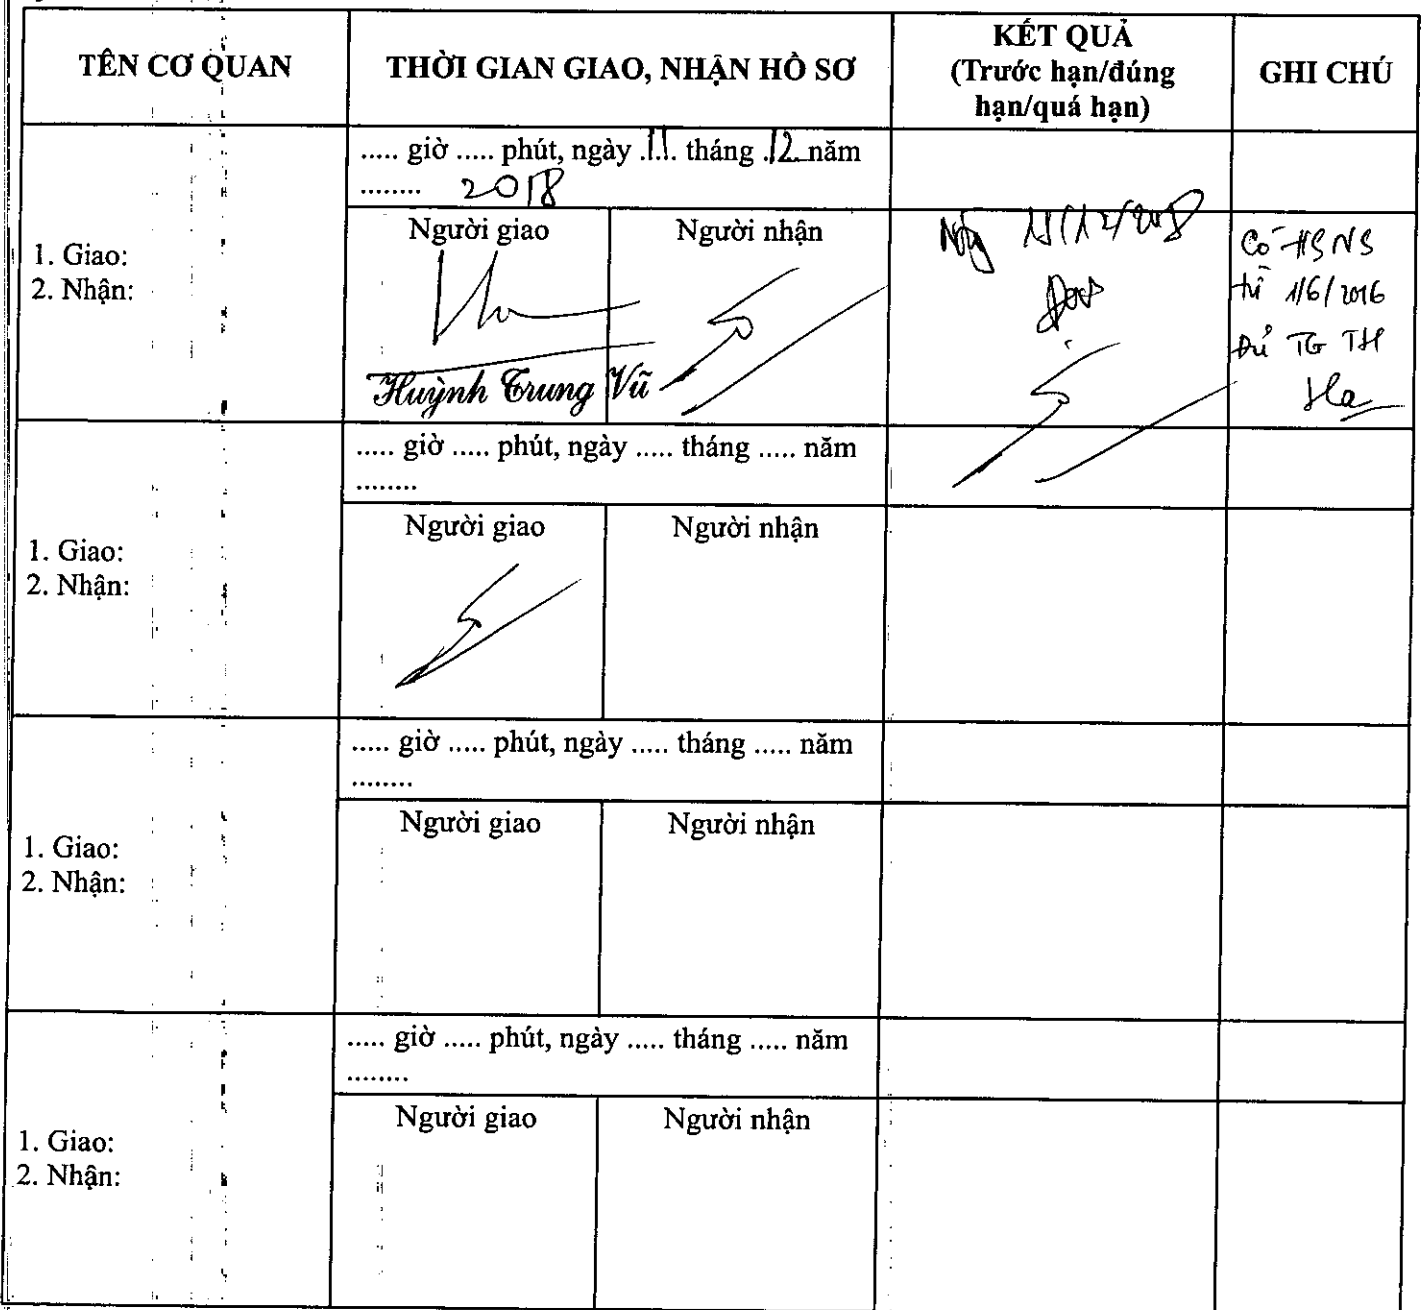 TÊN CƠ QUAN
THỜI GIAN GIAO, NHẬN HỒ SƠ
KẾT QUẢ
(Trước hạn/đúng
hạn/quá hạn)
GHI CHÚ
1. Giao:
2. Nhận:
..... giờ ..... phút, ngày .11. tháng .12 năm
........ 2018
Người giao
Người nhận
Huỳnh Trung Vũ
Có HSNS
từ 1/6/2016
Đủ TG TH
1. Giao:
2. Nhận:
..... giờ ..... phút, ngày ..... tháng ..... năm
........
Người giao
Người nhận
1. Giao:
2. Nhận:
..... giờ ..... phút, ngày ..... tháng ..... năm
........
Người giao
Người nhận
1. Giao:
2. Nhận:
..... giờ ..... phút, ngày ..... tháng ..... năm
........
Người giao
Người nhận